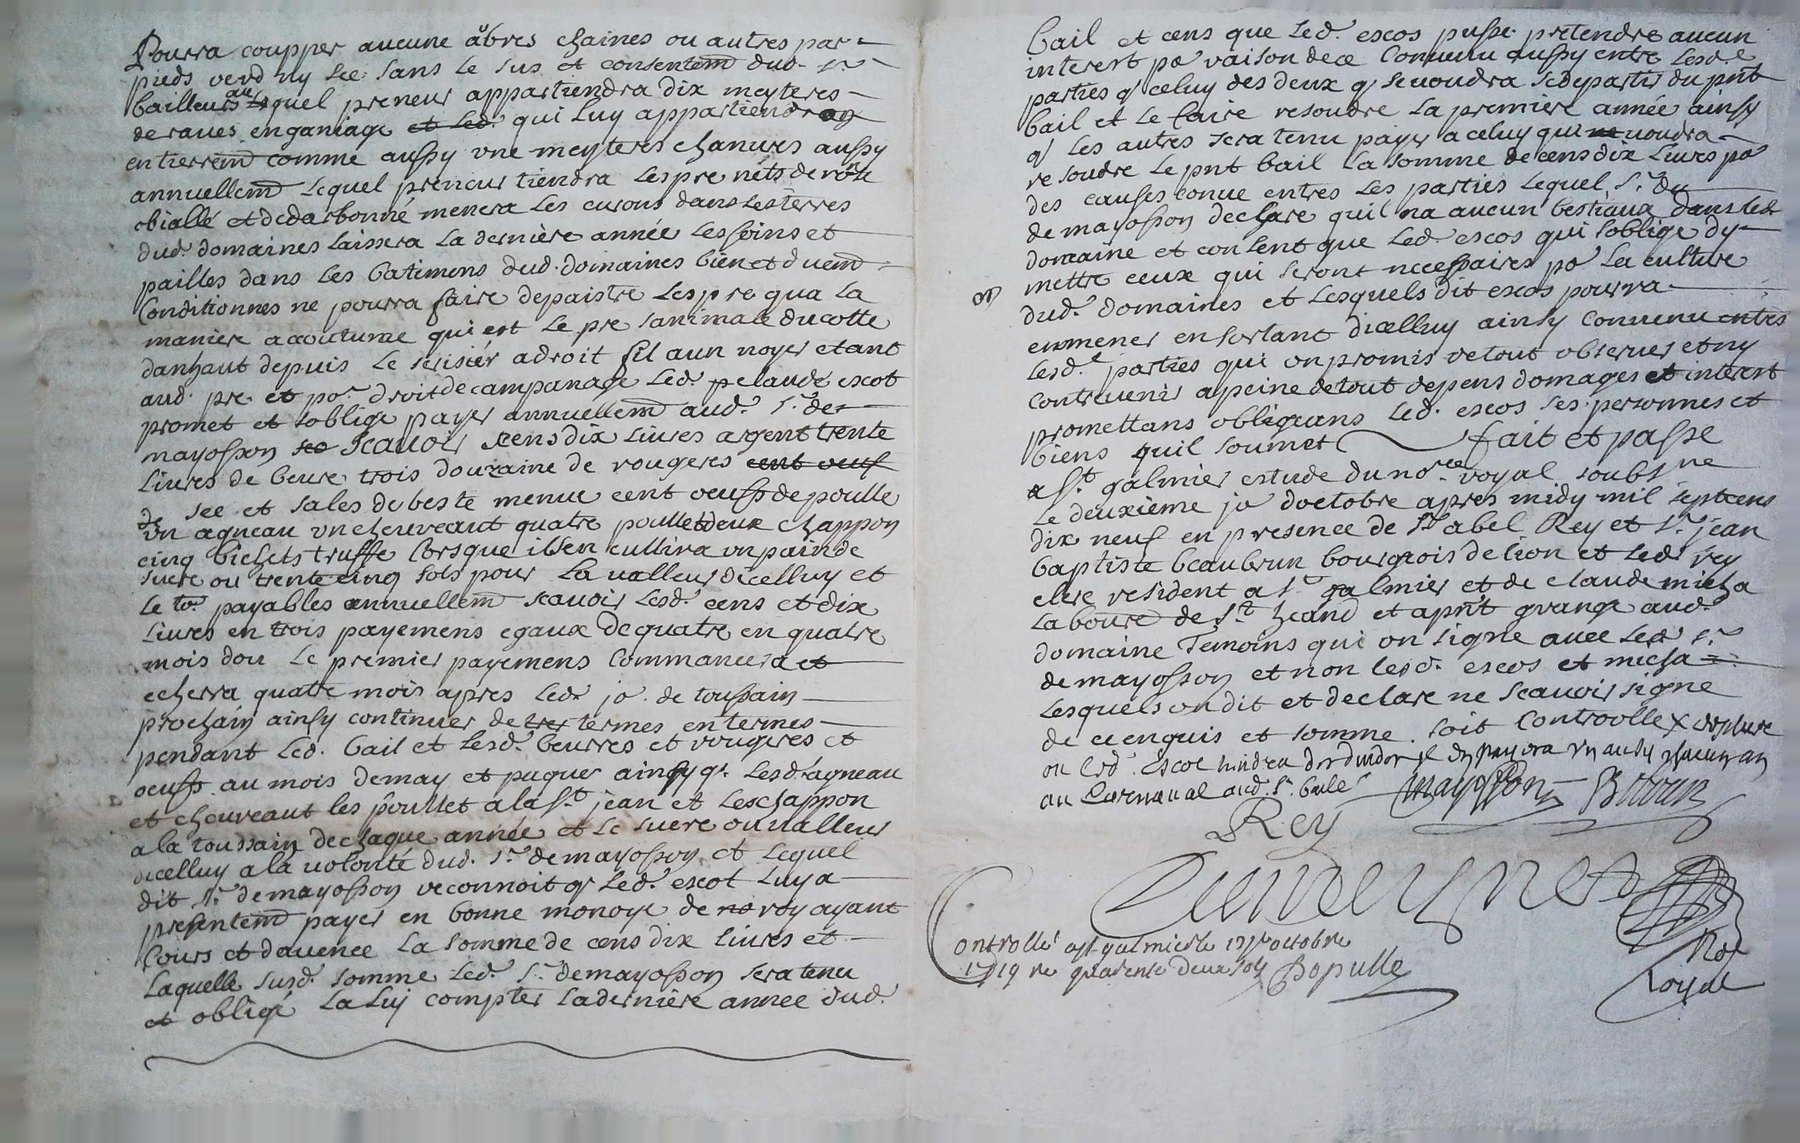 Pourra coupper aucune abres chaines ou autres par
pieds verd ny sec sans le sus et consentem dud. sr
bailleurs auquel preneur appartiendra dix meyteres
de raues en ganiage et led. qui luy appartiendron
entierrem comme aussy une meyteres chanures aussy
annuellem lequel preneur tiendra les pre nets de
et de darbonné menera les curons dans les terres
dud. domaines laissera la dernière année les foins et
pailles dans les batimens dud. domaines bien et duem
conditionnes ne pourra faire depaistre les pre qua la
maniere accoutumé qui est le pre du cotte
danhaut depuis le serisier a droit fil a un noyer etant
aud. pre et po. droit de campanage led. pe laude escot
promet et soblige payer annuellem aud. sr. de
mayosson scauoir cens dix liures argent trente
liures de beure trois douzaine de rougeres cent oeuf
de sec et sales de beste menue cent oeufs de poulle
un agneau un cheureaut quatre poullet deux chappon
cinq bichets truffe lorsque il sen cultiva un pain de
sucre ou trente cinq sols pour la valleur dicelluy et
le to. payables annuellem scauoir lesd. cens et dix
liures en trois payemens egaux de quatre en quatre
mois don le premier payemens commancera et
echerra quatre mois apres led. jo. de toussain
prochain ainsy continuer de termes en termes
pendant led. bail et lesd. beurres et rougeres et
oeufs au mois de may et paques ainsy q. lesd. agneau
et cheureaut les poullet a la st. jean et les chappon
a la toussain de chaque année et le sucre ou valleur
dicelluy a la volonté dud. sr. de mayosson et lequel
dit sr. de mayosson reconnoit q. led. escot luy a
presentem payer en bonne monoye de roy ayant
cours et davence la somme de cens dix liures et
laquelle susd. somme led. sr. de mayosson sera tenu
et obligé la luy compter la dernière annee dud.
bail et cens que led. escos pusse pretendre aucun
interest po raison de ce conuenu aussy entre lesd.
parties q. celuy des deux q. se voudra se departir du pnt
bail et le faire resoudre la premiere année ainsy
q. les autres sera tenu payer a celuy qui voudra
resoudre le pnt bail la somme de cens dix liures po
des causes conue entres les parties lequel sr. du
de mayosson declare quil na aucun bestiaux dans led.
domaine et consent que led. escos qui soblige dy
mettre ceux qui seront necessaires po la culture
dud. domaines et lesquels dit escos pourra
emmener en sortant dicelluy ainsy conuenu entres
lesd. parties qui on promis retout obseruer et ny
contreuenir a peine de tout depens domages et interest
promettans obligeans led. escos ses personnes et
biens quil soumet fait et passe
a st. galmier estude du no.re royal soubs.ne
le deuxième jo doctobre apres midy mil sept cens
dix neuf en presence de sr. abel Rey et sr. jean
baptiste beaubrun bourgeois de lion et led. rey
clerc resident a st. galmier et de claude micha
laboure de st. heand et apnt grange aud.
domaine Temoins qui on signe avec led. sr.
de mayosson et non lesd. escos et micha
lesquels on dit et declare ne scauoir signe
de ce enquis et somme. soit controolle
ou led. escot
au Carnaual aud. sr. mayosson
Rey
Controllé a st galmier le octobre
1719 re quarente deux sols Populle
Not
Royal